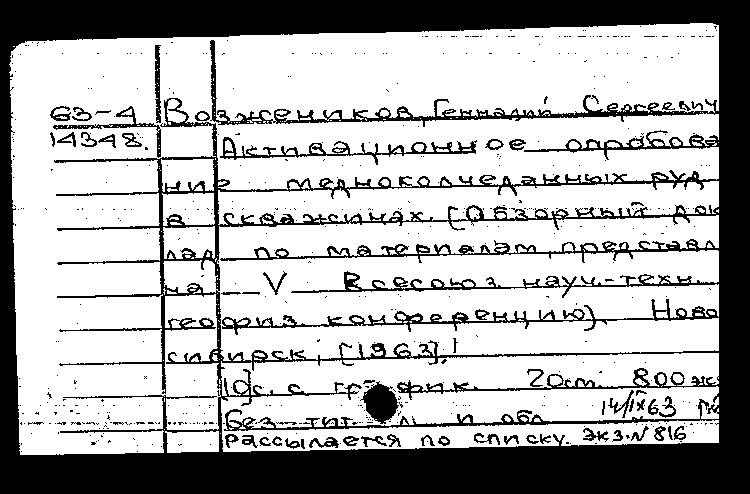 63-4 Возжеников, Геннадий Сергеевич
14348. Активационное опробова
ние медноколчеданных руд
в скважинах. [Обзорный док
лад по материалам, представл
на V Всесоюз. науч.-техн.
геофиз. конференцию]. Ново
сибирск, [1963].
10]с. с график. 20см. 800 эк
Без тит. л. и обл. 14/IX 63
Рассылается по списку. экз.N 816